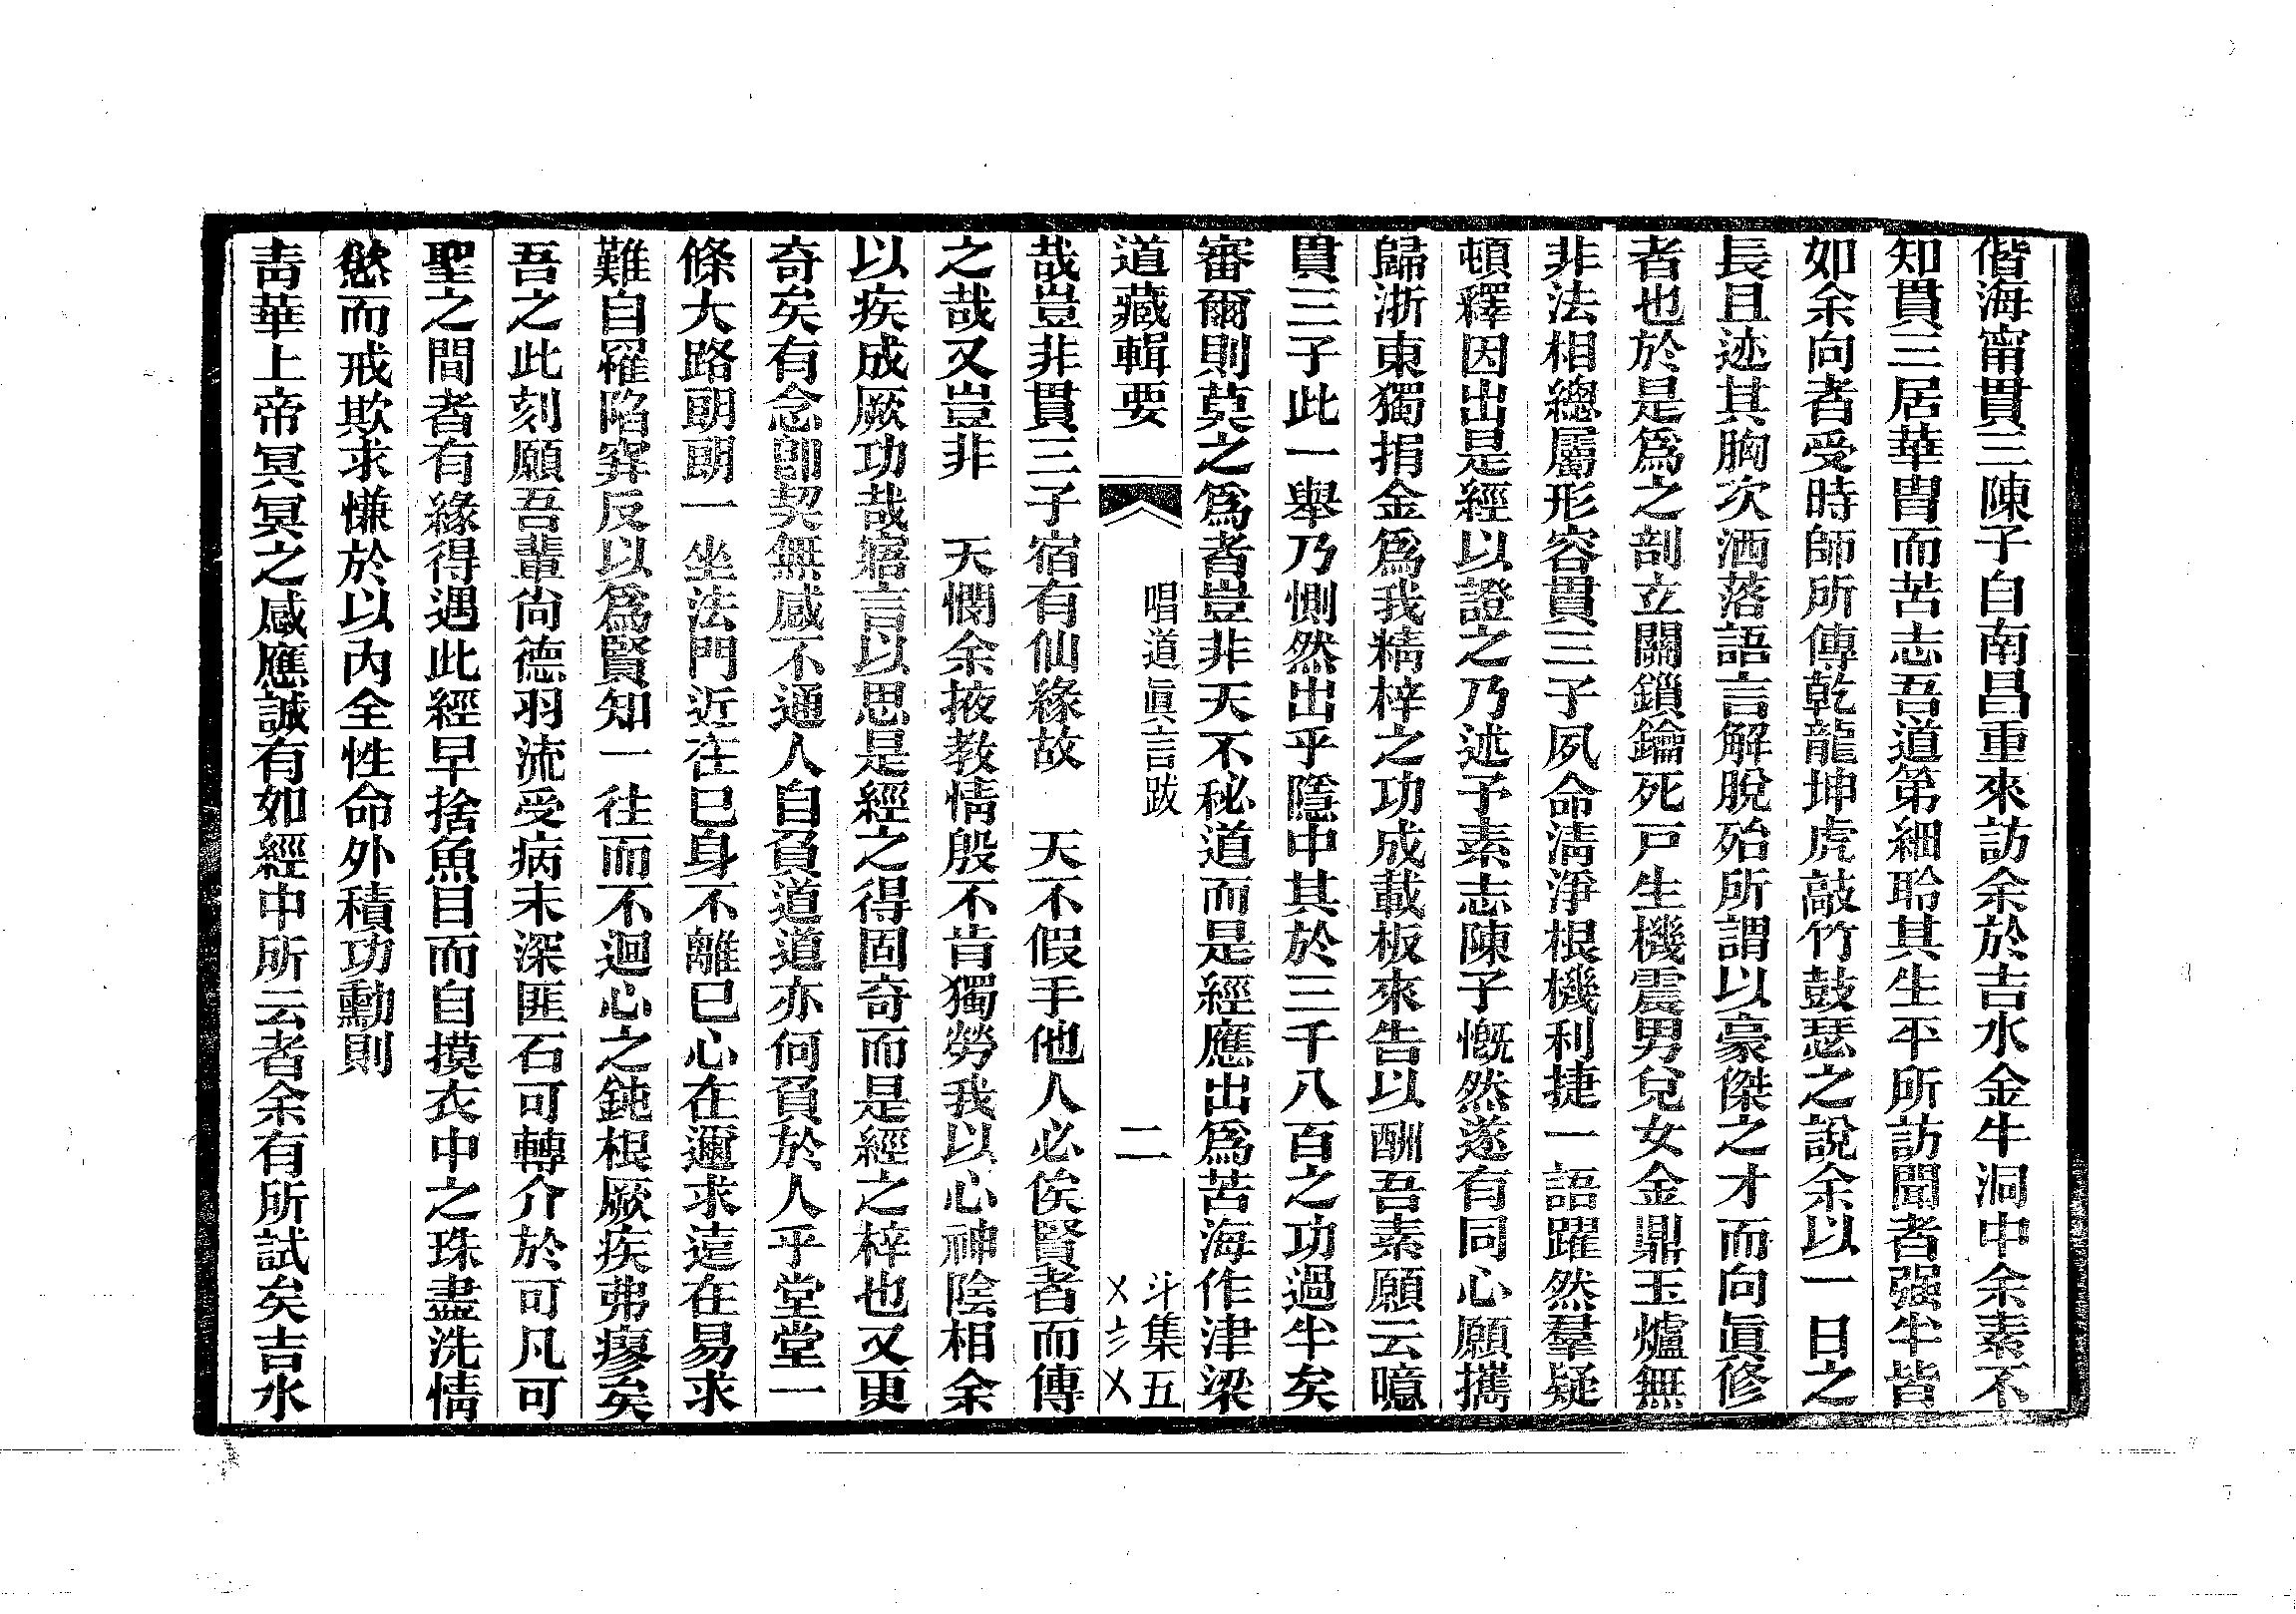 偕海甯貫三陳子自南昌重來訪余於吉水金牛洞中余素不
知貫三居華胄而苦志吾道第細聆其生平所訪聞者强半皆
如余向者受時師所傳乾龍坤虎敲竹鼓瑟之說余以一日之
長且迹其胸次洒落語言解脫殆所謂以豪傑之才而向眞修
者也於是爲之剖立關鎖鑰死戸生機震男兌女金鼎玉爐無
非法相總屬形容貫三子夙命淸淨根機利捷一語躍然羣疑
頓釋因出是經以證之乃述予素志陳子慨然遂有同心願攜
歸浙東獨捐金爲我精梓之功成載板來告以酬吾素願云噫
貫三子此一舉乃惻然出乎隱中其於三千八百之功過半矣
審爾則莫之爲者豈非天不秘道而是經應出爲苦海作津梁
道藏輯要 唱道眞言跋 二 斗集五
哉豈非貫三子宿有仙緣故 天不假手他人必俟賢者而傳
之哉又豈非 天憫余掖教情殷不肯獨勞我以心神陰相余
以疾成厥功哉寤言以思是經之得固奇而是經之梓也又更
奇矣有念卽契無感不通人自負道道亦何負於人乎堂堂一
條大路朗朗一坐法門近在已身不離已心在邇求遠在易求
難自罹陷穽反以爲賢知一往而不迴心之鈍根厥疾弗瘳矣
吾之此刻願吾輩尙德羽流受病未深匪石可轉介於可凡可
聖之間者有緣得遇此經早捨魚目而自摸衣中之珠盡洗情
慾而戒欺求慊於以內全性命外積功勳則
靑華上帝冥冥之感應誠有如經中所云者余有所試矣吉水